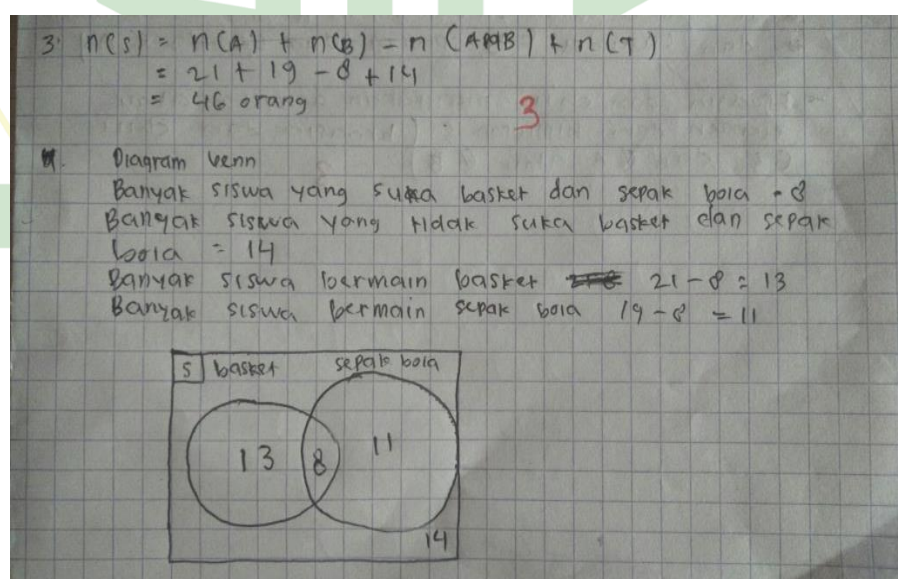 3. n(S) = n(A) + n(B) - n (A∩B) + n(T)
= 21 + 19 - 8 + 14
= 46 orang
3
Diagram Venn
Banyak siswa yang suka basket dan sepak bola = 8
Banyak siswa yang tidak suka basket dan sepak
bola = 14
Banyak siswa bermain basket 21 - 8 = 13
Banyak siswa bermain sepak bola 19 - 8 = 11
S basket sepak bola
13 8 11
14